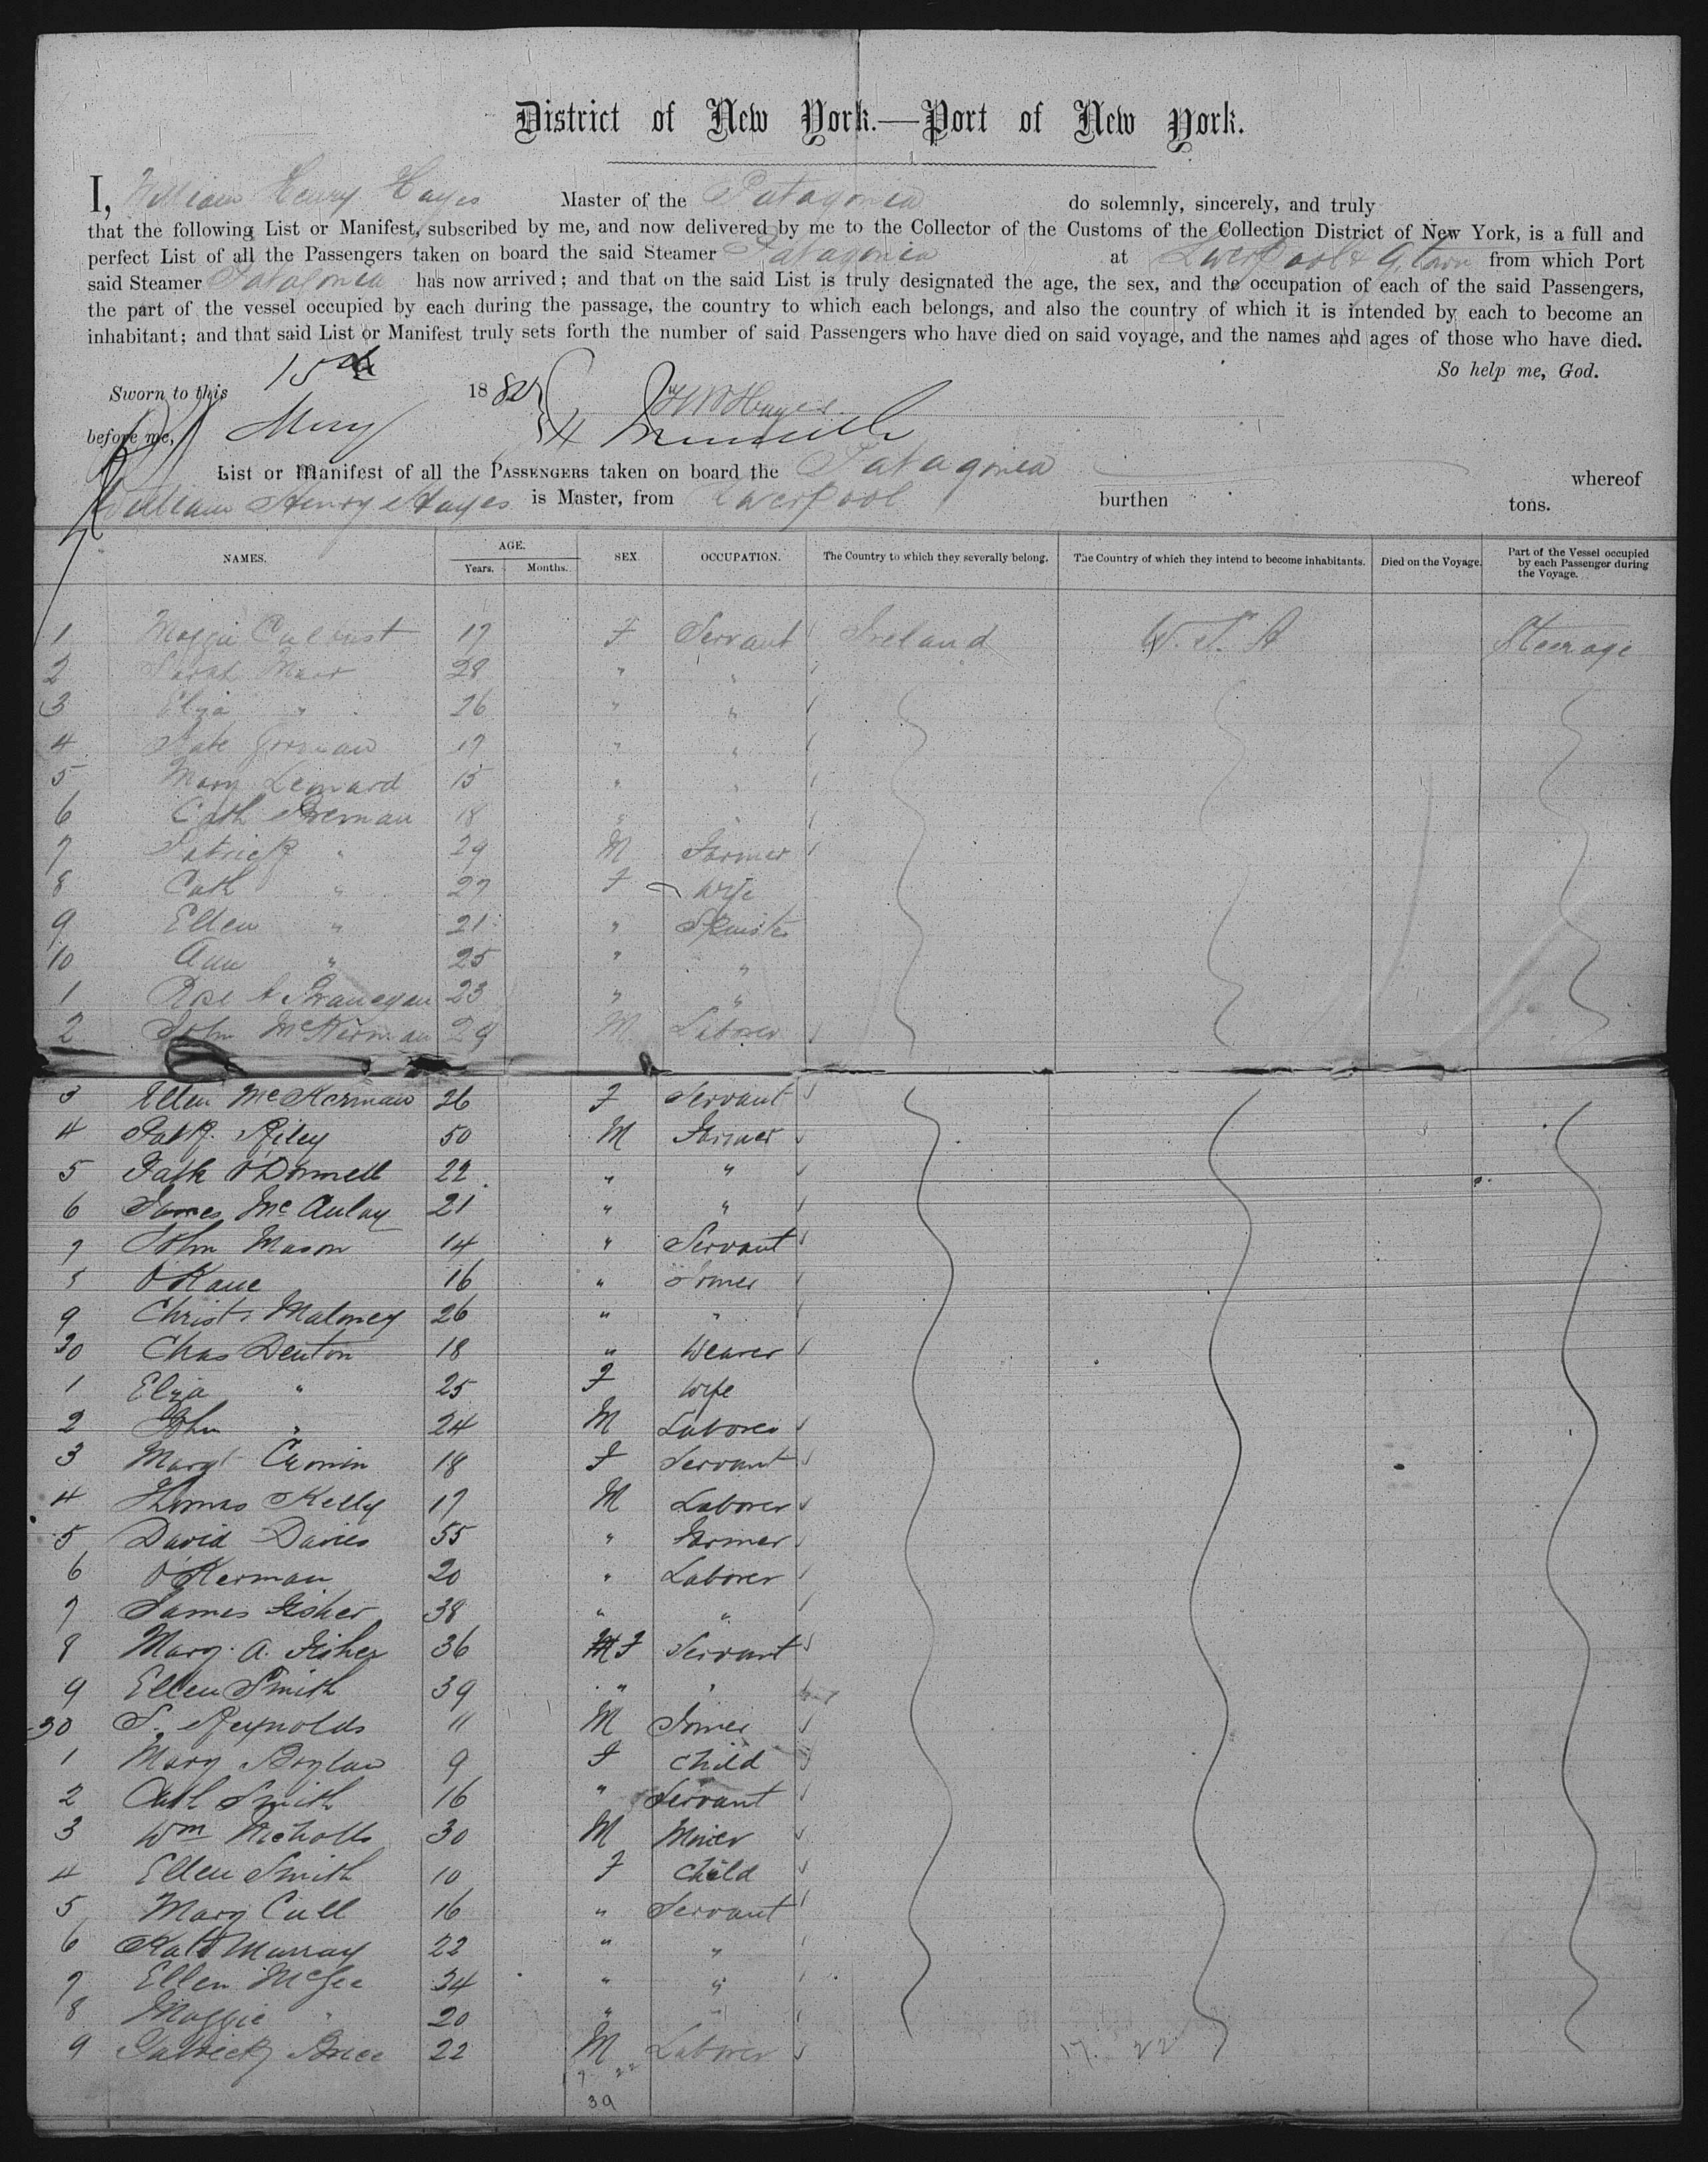 District of New York.—Port of New York.
I, William Henry Hayes Master of the Patagonia do solemnly, sincerely, and truly
that the following List or Manifest, subscribed by me, and now delivered by me to the Collector of the Customs of the Collection District of New York, is a full and
perfect List of all the Passengers taken on board the said Steamer Patagonia at Liverpool & Q.town from which Port
said Steamer Patagonia has now arrived; and that on the said List is truly designated the age, the sex, and the occupation of each of the said Passengers,
the part of the vessel occupied by each during the passage, the country to which each belongs, and also the country of which it is intended by each to become an
inhabitant; and that said List or Manifest truly sets forth the number of said Passengers who have died on said voyage, and the names and ages of those who have died.
So help me, God.
Sworn to this 15th 1880
before me, May W H Hayes
List or Manifest of all the Passengers taken on board the Patagonia whereof
William Henry Hayes is Master, from Liverpool burthen tons.
NAMES. AGE. Years. Months. SEX. OCCUPATION. The Country to which they severally belong. The Country of which they intend to become inhabitants. Died on the Voyage. Part of the Vessel occupied by each Passenger during the Voyage.
1 Maggie 17 F Servant Ireland U.S.A Steerage
2 Sarah 28 " "
3 Eliza " 26 " "
4 Kate Gorman 17 " "
5 Mary Lennard 15 " "
6 Cath Brennan 18 " "
7 Patrick " 29 M Farmer
8 Cath " 27 F Wife
9 Ellen " 21 " Spinster
10 Ann " 25 " "
1 Rose A 23 " "
2 John McKernan 29 M Laborer
3 Ellen McKernan 26 F Servant
4 Patk. Riley 50 M Farmer
5 Patk O'Donnell 22 " "
6 James McAulay 21 " "
7 John Mason 14 " Servant
8 O'Kane 16 "
9 Christ. Maloney 26 " "
20 Chas Denton 18 " Weaver
1 Eliza " 25 F Wife
2 John " 24 M Laborer
3 Margt Cronin 18 F Servant
4 Thomas Kelly 17 M Laborer
5 David Davies 55 " Farmer
6 O'Kernan 20 " Laborer
7 James Fisher 38 " "
8 Mary A. Fisher 36 F Servant
9 Ellen Smith 39 " "
30 S. Reynolds 11 M
1 Mary Boylan 9 F Child
2 Cath Smith 16 " Servant
3 Wm Nicholls 30 M Miner
4 Ellen Smith 10 F Child
5 Mary Cull 16 " Servant
6 Kate Murray 22 " "
7 Ellen McGee 34 " "
8 Maggie " 20 " "
9 Patrick Brice 22 M Laborer
17. 22
17 22
39